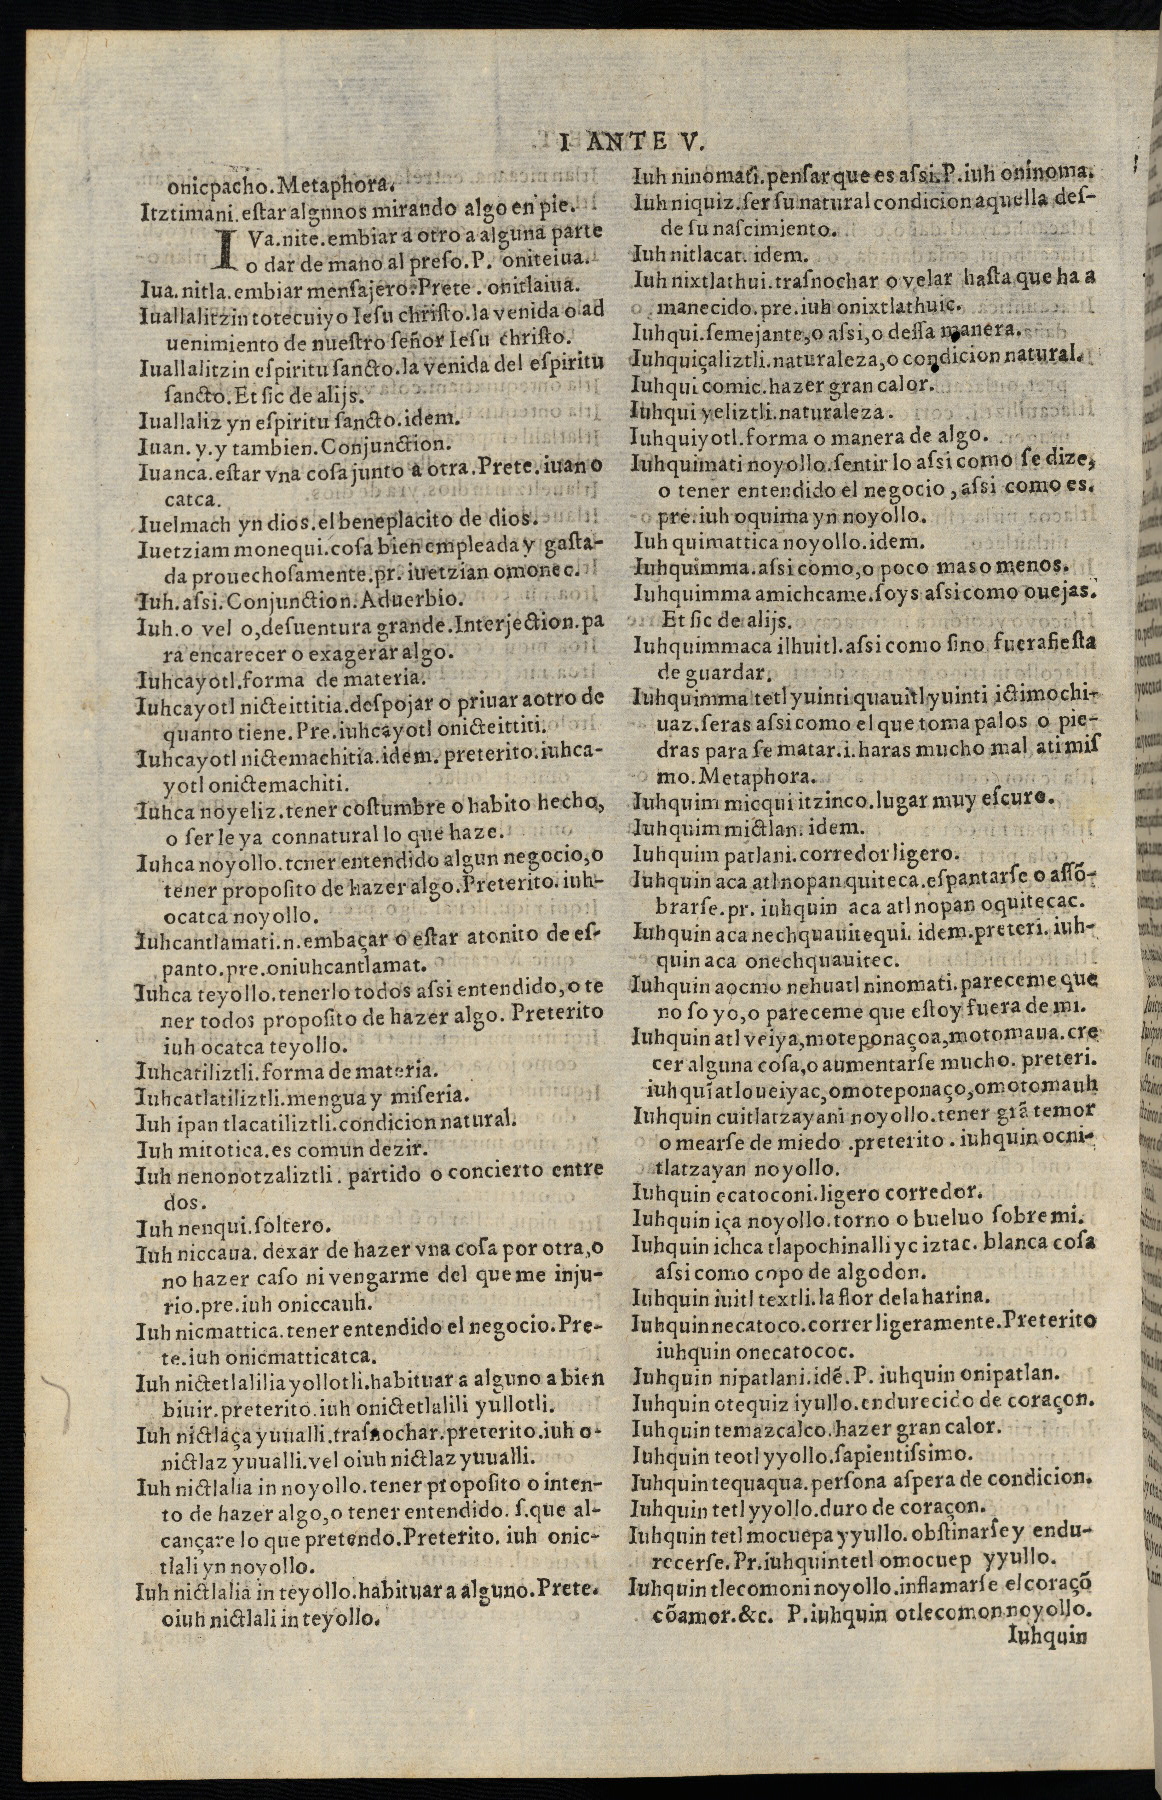 I ANTE V.
onicpacho.Metaphora.
Itztimani.eſtar algunos mirando algo en pie.
IVa.nite.embiar a otro a alguna parte
o dar de mano al preſo.P. oniteiua.
Iua.nitla.embiar menſajero.Prete. onitlaiua.
Iuallalitzin totecuiyo Ieſu chriſto.la venida o ad
uenimiento de nueſtro ſeñor Ieſu chriſto.
Iuallalitzin eſpiritu ſancto.la venida del eſpiritu
ſancto.Et ſic de alijs.
Iuallaliz yn eſpiritu ſancto.idem.
Iuan.y.y tambien.Conjunction.
Iuanca.eſtar vna coſa junto a otra.Prete.iuan o
catca.
Iuelmach yn dios.el beneplacito de dios.
Iuetziam monequi.coſa bien empleada y gaſta-
da prouechoſamente.pr. iuetzian omonec.
Iuh.aſsi.Conjunction.Aduerbio.
Iuh.o vel o,deſuentura grande.Interjection.pa
ra encarecer o exagerar algo.
Iuhcayotl.forma de materia.
Iuhcayotl nicteittitia.deſpojar o priuar aotro de
quanto tiene.Pre.iuhcayotl onicteittiti.
Iuhcayotl nictemachitia.idem.preterito.iuhca-
yotl onictemachiti.
Iuhca noyeliz.tener coſtumbre o habito hecho,
o ſer le ya connatural lo que haze.
Iuhca noyollo.tener entendido algun negocio,o
tener propoſito de hazer algo.Preterito.iuh-
ocatca noyollo.
Iuhcantlamati.n.embaçar o eſtar atonito de eſ-
panto.pre.oniuhcantlamat.
Iuhca teyollo.tenerlo todos aſsi entendido,o te
ner todos propoſito de hazer algo. Preterito
iuh ocatca teyollo.
Iuhcatiliztli.forma de materia.
Iuhcatlatiliztli.mengua y miſeria.
Iuh ipan tlacatiliztli.condicion natural.
Iuh mitotica.es comun dezir.
Iuh nenonotzaliztli. partido o concierto entre
dos.
Iuh nenqui.ſoltero.
Iuh niccaua. dexar de hazer vna coſa por otra,o
no hazer caſo ni vengarme del que me inju-
rio.pre.iuh oniccauh.
Iuh nicmattica.tener entendido el negocio.Pre-
te.iuh onicmatticatca.
Iuh nictetlalilia yollotli.habituar a alguno a bien
biuir.preterito.iuh onictetlalili yullotli.
Iuh nictlaça yuualli.traſnochar.preterito.iuh o-
nictlaz yuualli.vel oiuh nictlaz yuualli.
Iuh nictlalia in noyollo.tener propoſito o inten-
to de hazer algo,o tener entendido. ſ.que al-
cançare lo que pretendo.Preterito. iuh onic-
tlali yn noyollo.
Iuh nictlalia in teyollo.habituar a alguno.Prete.
oiuh nictlali in teyollo.
Iuh ninomati.penſar que es aſsi.P.iuh oninoma.
Iuh niquiz.ſer ſu natural condicion aquella deſ-
de ſu naſcimiento.
Iuh nitlacat. idem.
Iuh nixtlathui.traſnochar o velar haſta que ha a
manecido.pre.iuh onixtlathuic.
Iuhqui.ſemejante,o aſsi,o deſſa manera.
Iuhquiçaliztli.naturaleza,o condicion natural.
Iuhqui comic.hazer gran calor.
Iuhqui yeliztli.naturaleza.
Iuhquiyotl.forma o manera de algo.
Iuhquimati noyollo.ſentir lo aſsi como ſe dize,
o tener entendido el negocio,aſsi como es.
pre.iuh oquima yn noyollo.
Iuh quimattica noyollo.idem.
Iuhquimma.aſsi como,o poco mas o menos.
Iuhquimma amichcame.ſoys aſsi como ouejas.
Et ſic de alijs.
Iuhquimmaca ilhuitl.aſsi como ſino fuera fieſta
de guardar.
Iuhquimma tetl yuinti quauitl yuinti ictimochi-
uaz.ſeras aſsi como el que toma palos o pie-
dras para ſe matar.i.haras mucho mal ati miſ
mo.Metaphora.
Iuhquim micqui itzinco.lugar muy eſcuro.
Iuhquim mictlan. idem.
Iuhquim patlani.corredor ligero.
Iuhquin aca atl nopan quiteca.eſpantarſe o aſſõ-
brarſe.pr. iuhquin aca atl nopan oquitecac.
Iuhquin aca nechquauitequi. idem.preteri. iuh-
quin aca onechquauitec.
Iuhquin aocmo nehuatl ninomati.pareceme que
no ſo yo,o pareceme que eſtoy fuera de mi.
Iuhquin atl veiya,moteponaçoa,motomaua.cre
cer alguna coſa,o aumentarſe mucho. preteri.
iuhquĩ atl oueiyac,omoteponaço,omotomauh
Iuhquin cuitlatzayani noyollo.tener grã temor
o mearſe de miedo .preterito. iuhquin ocui-
tlatzayan noyollo.
Iuhquin ecatoconi.ligero corredor.
Iuhquin iça noyollo.torno o bueluo ſobre mi.
Iuhquin ichca tlapochinalli yc iztac. blanca coſa
aſsi como copo de algodon.
Iuhquin iuitl textli.la flor dela harina.
Iuhquin necatoco.correr ligeramente.Preterito
iuhquin onecatococ.
Iuhquin nipatlani.idẽ.P. iuhquin onipatlan.
Iuhquin otequiz iyullo.endurecido de coraçon.
Iuhquin temazcalco.hazer gran calor.
Iuhquin teotl yyollo.ſapientiſsimo.
Iuhquin tequaqua.perſona aſpera de condicion.
Iuhquin tetl yyollo.duro de coraçon.
Iuhquin tetl mocuepa yyullo.obſtinarſe y endu-
recerſe.Pr.iuhquin tetl omocuep yyullo.
Iuhquin tlecomoni noyollo.inflamarſe el coraçõ
cõ amor.&c. P.iuhquin otlecomon noyollo.
Iuhquin